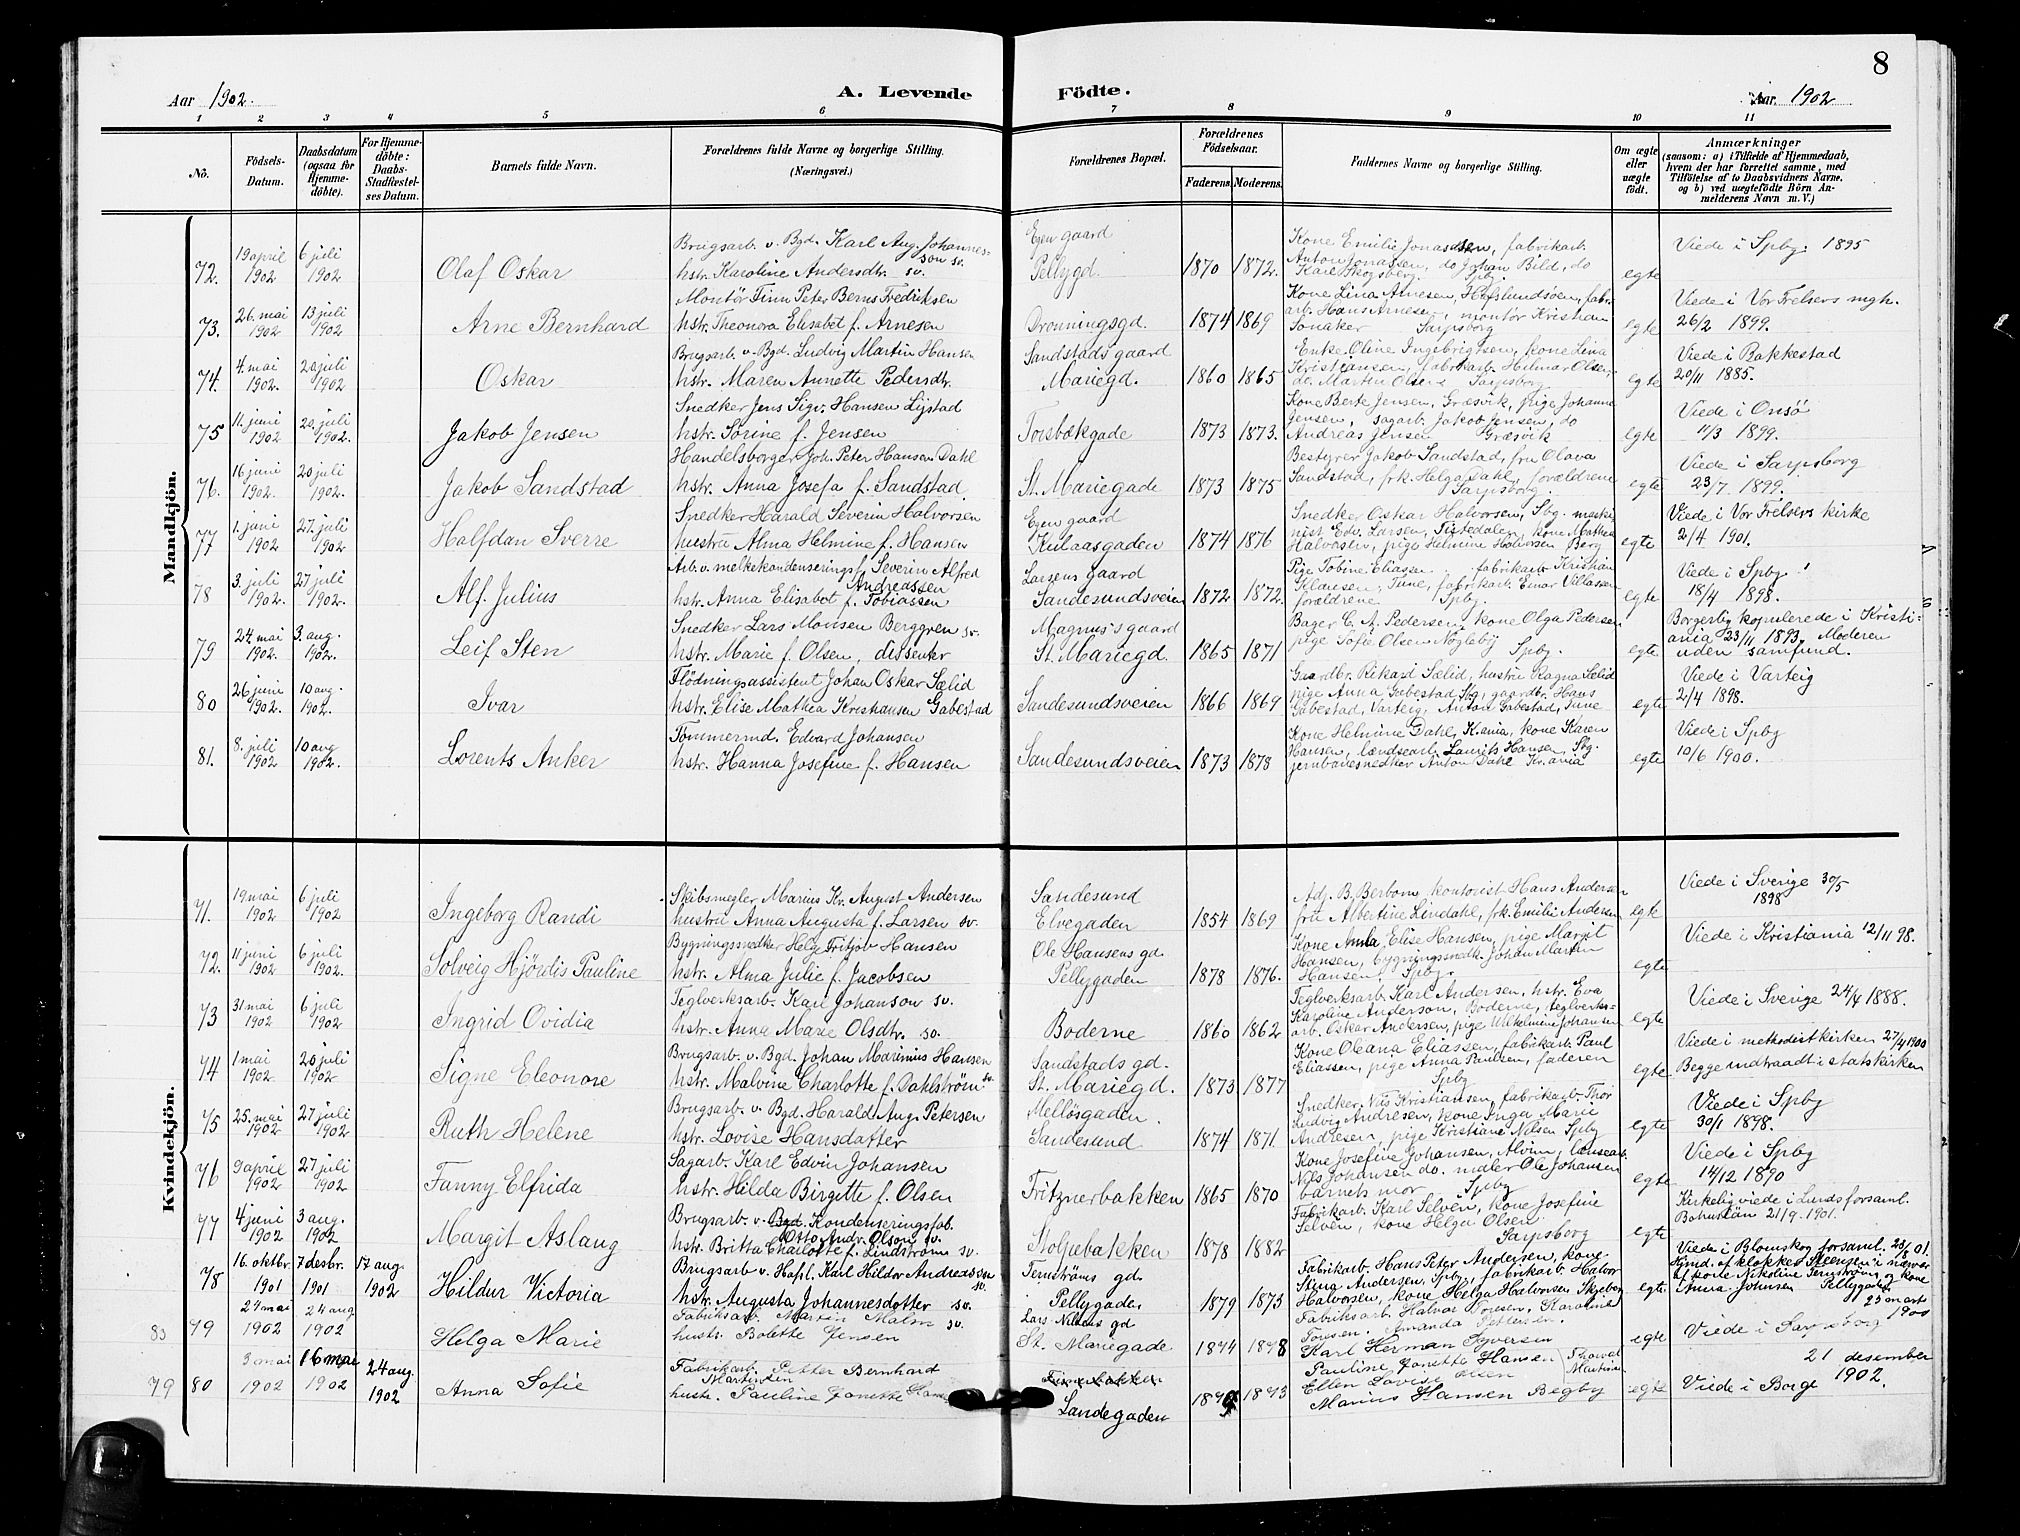 8
Aar 1902.
A. Levende Födte.
Aar 1902
1 2 3 4 5 6 7 8 9 10 11
No.
Födsels-Datum.
Daabsdatum (ogsaa for Hjemmedöbte).
For Hjemmedöbte: Daabs-Stadfestelses Datum.
Barnets fulde Navn.
Forældrenes fulde Navne og borgerlige Stilling.
(Næringsvei.)
Forældrenes Bopæl.
Forældrenes Födselsaar.
Faderens. Moderens.
Faddernes Navne og borgerlige Stilling.
Om ægte eller uægte födt.
Anmærkninger
(saasom: a) i Tilfælde af Hjemmedaab, hvem der har forrettet samme, med Tilföielse af to Daabsvidners Navne, og b) ved uægtefödte Börn Anmelderens Navn m. V.)
Mandkjön.
72. 19 april 1902 6 juli 1902 Olaf Oskar
Brugsarb. v. Bgd. Karl Aug. Johannesson sv.
hstr. Karoline Andersdtr. sv.
Egen gaard
Pellygd. 1870 1872.
Kone Emilie Jonassen, fabrikarb.
Anton Jonassen, do Johan Bild, do
Karl Skogsberg Spbg. egte
Viede i Spbg. 1895
73. 26. mai 1902 13 juli 1902 Arne Bernhard
Montör Finn Peter Berns Fredriksen
hstr. Theonora Elisabet f. Arnesen
Dronningsgd. 1874 1869
Kone Lina Arnesen, Hafslundsöen, fabr.
arb. Hans Arnesen, montör Kristian
Tonaker Sarpsborg egte
Viede i Vor Frelsers mgh.
26/2 1899.
74. 4. mai 1902. 20 juli 1902 Oskar
Brugsarb. v. Bgd. Ludvig Martin Hansen
hstr. Maren Annette Pedersdtr.
Sandstads gaard
Mariegd. 1860 1865
Enke Oline Ingebrigtsen, kone Lina
Kristiansen, fabrikarb. Helmar Olsen,
do. Martin Olsen Sarpsborg egte
Viede i Bakkestad
20/11 1885.
75 11. juni 1902 20. juli 1902. Jakob Jensen
Snedker Jens Sigv. Hansen Lystad
hstr. Sörine f. Jensen
Torsbækgade 1873 1873.
Kone Berte Jensen, Græsvik, pige Johanne
Jensen, sagarb. Jakob Jensen, do
Andreas Jensen Græsvik egte
Viede i Onsö
11/3 1899.
76. 16 juni 1902. 20 juli 1902. Jakob Sandstad
Handelsborger Joh. Peter Hansen Dahl
hstr. Anna Josefa f. Sandstad
St. Mariegade 1873 1875
Bestyrer Jakob Sandstad, fru Olava
Sandstad, frk. Helga Dahl, forældrene
Sarpsborg. egte
Viede i Sarpsborg
23/7 1899.
77 1. juni 1902 27. juli 1902 Halfdan Sverre
Snedker Harald Severin Halvorsen
hustru Alma Helmine f. Hansen
Egen gaard
Kulaasgaden 1874 1876
Snedker Oskar Halvorsen, Sbg. maski-
nist Edv. Larsen, Tistedalen, kone Mathea
Halvorsen, pige Helmine Halvorsen Berg egte
Viede i Vor Frelsers kirke
2/4 1901.
78 3. juli 1902. 27 juli 1902. Alf. Julius
Arb. v. melkekondenseringsf. Severin Alfred Andreassen
hstr. Anna Elisabet f. Tobiassen
Larsens gaard
Sandesundsveien 1872 1872.
Pige Tobine Eliassen, fabrikarb. Kristian
Klausen, Tune, fabrikarb. Einar Villassen
forældrene Spbg. egte
Viede i Spbg
18/4 1898.
79 24. mai 1902. 3. aug. 1902. Leif Sten
Snedker Lars Monsen Berggren sv.
hstr. Marie f. Olsen, dissenter
Magnus's gaard
St. Mariegd. 1865 1871
Bager C. A. Pedersen, kone Olga Pedersen
pige Sofie Olsen Nögleby Spbg. egte
Borgerlig kopulerede i Kristi-
ania 23/11 1893. Moderen
uden samfund.
80 26 juni 1902. 10 aug. 1902. Ivar
Flödningsassistent Johan Oskar Sælid
hstr. Elise Mathea Kristiansen Gabestad
Sandesundsveien 1866 1869
Gaardbr. Rikard Sælid, hustru Ragna Sælid
pige Anna Gabestad Sbg, gaardbr. Hans
Gabestad, Varteig, Anton Gabestad, Tune egte
Viede i Varteig
2/4 1898.
81. 8. juli 1902 10 aug 1902. Lorents Anker
Tömmermd. Edvard Johansen
hstr. Hanna Josefine f. Hansen
Sandesundsveien 1873 1878
Kone Helmine Dahl, K.ania, kone Karen
Hansen, lændsearb. Laurits Hansen, Sbg.
jernbanesnedker Anton Dahl Kr.ania egte
Viede i Spbg
10/6 1900.
Kvindekjön.
71. 19 mai 1902 6 juli 1902 Ingeborg Randi
Skibsmegler Marius Kr. August Andersen
hustru Anna Augusta f. Larsen sv.
Sandesund
Elvegaden 1854 1869
Adj. B. Berbom, kontorist Hans Andersen
fru Albertine Lindahl, frk. Emilie Andersen egte
Viede i Sverige 30/5
1898
72. 11 juni 1902 6 juli 1902. Solveig Hjördis Pauline
Bygningssnedker Helge Fritjov Hansen
hstr. Alma Julie f. Jacobsen
Ole Hansens gd.
Pellygaden 1878 1876.
Kone Anna Elise Hansen, pige Margit
Hansen, bygningssnedk. Johan Martin
Hansen Spbg. egte
Viede i Kristiania 12/11 98.
73 31 mai 1902 6 juli 1902 Ingrid Ovidia
Teglverksarb. Karl Johanson sv.
hstr. Anna Marie Olsdtr. sv.
Boderne 1860 1862
Teglverksarb. Karl Andersen, hstr. Eva
Karoline Anderson, Boderne, teglverks-
arb. Oskar Andersen, pige Wilhelmine Johansen egte
Viede i Sverige 24/4 1888.
74 1 mai 1902 20 juli 1902 Signe Eleonore
Brugsarb. v. Bgd. Johan Marinius Hansen
hstr. Malvine Charlotte f. Dahlström sv.
Sandstads gd.
St. Mariegd. 1873 1877
Kone Oleana Eliassen, fabrikarb. Paul
Eliassen, pige Anna Paulsen, faderen
Spbg egte
Viede i methodistkirken 27/4 1900
Begge indtraadt i statskirken
75 25. mai 1902 27 juli 1902 Ruth Helene
Brugsarb. v. Bgd. Harald Aug. Petersen
hstr. Lovise Hansdatter
Mellösgaden.
Sandesund 1874 1871.
Snedker Nils Kristiansen, fabrikarb. Thor
Ludvig Andresen, kone Inga Marie
Andresen, pige Kristiane Nilsen Spbg egte
Viede i Spbg
30/1 1898.
76 9 april 1902 27 juli 1902 Fanny Elfrida
Sagarb. Karl Edvin Johansen
hstr. Hilda Birgitte f. Olsen
Fritznerbakken 1865 1870
Kone Josefine Johansen, Alvim, lænsearb.
Nils Johansen do. maler Ole Johansen
barnets mor Spbg egte
Viede i Spbg
14/12 1890
77 4 juni 1902 3 aug. 1902 Margit Aslaug
Brugsarb. v. Bgd. Kondenseringsfab.
Otto Andr. Olson sv.
hstr. Britta Charlotte f. Lindström sv.
Stolpebakken 1878 1882
Fabrikarb. Karl Selven, kone Josefine
Selven, kone Helga Olsen
Sarpsborg egte
Kirkelig viede i Lunds forsaml.
Bohuslän 21/9. 1901.
78 16. oktbr. 1901 7 desbr. 1901 17 aug. 1902 Hildur Victoria
Brugsarb v. Hafsl. Karl Hildor Andreasson sv.
hstr. Augusta Johannesdotter sv.
Ternströms gd.
Pellygaden 1879 1873
Fabrikarb. Hans Peter Andersen, kone
Stina Andersen, Spbg, fabrikarb. Halvor
Halvorsen, kone Helga Halvorsen Skjeberg egte.
Viede i Blomskog forsaml. 23/8 01.
Hjmd. af klokker Steensen i nærver
af Nikoline Ternström og kone
Anna Johnsen Pellygaden
83 79 29 mai 1902 24 aug 1902 Helga Marie
Fabriksarb. Martin Malm sv.
hustr. Bolette Jensen
Lars Nilsens gd
St. Mariegade 1874 1878
Fabriksarb. Halvor Toresen, Karoline
Toresen, Amanda Pettersen.
Karl Herman Syversen egte
23 marts
1900
Viede i Sarpsborg
79 80 3 mai 1902 16 mai 1902 24 aug. 1902 Anna Sofie
Fabrikarb. Petter Bernhard
Martinsen
hustr. Pauline Janette
Sandegaden 1893
Pauline Janette Hansen
Ellen Lovise Olsen
Marius Hansen Begby egte
21 desember
1902.
Viede i Borge